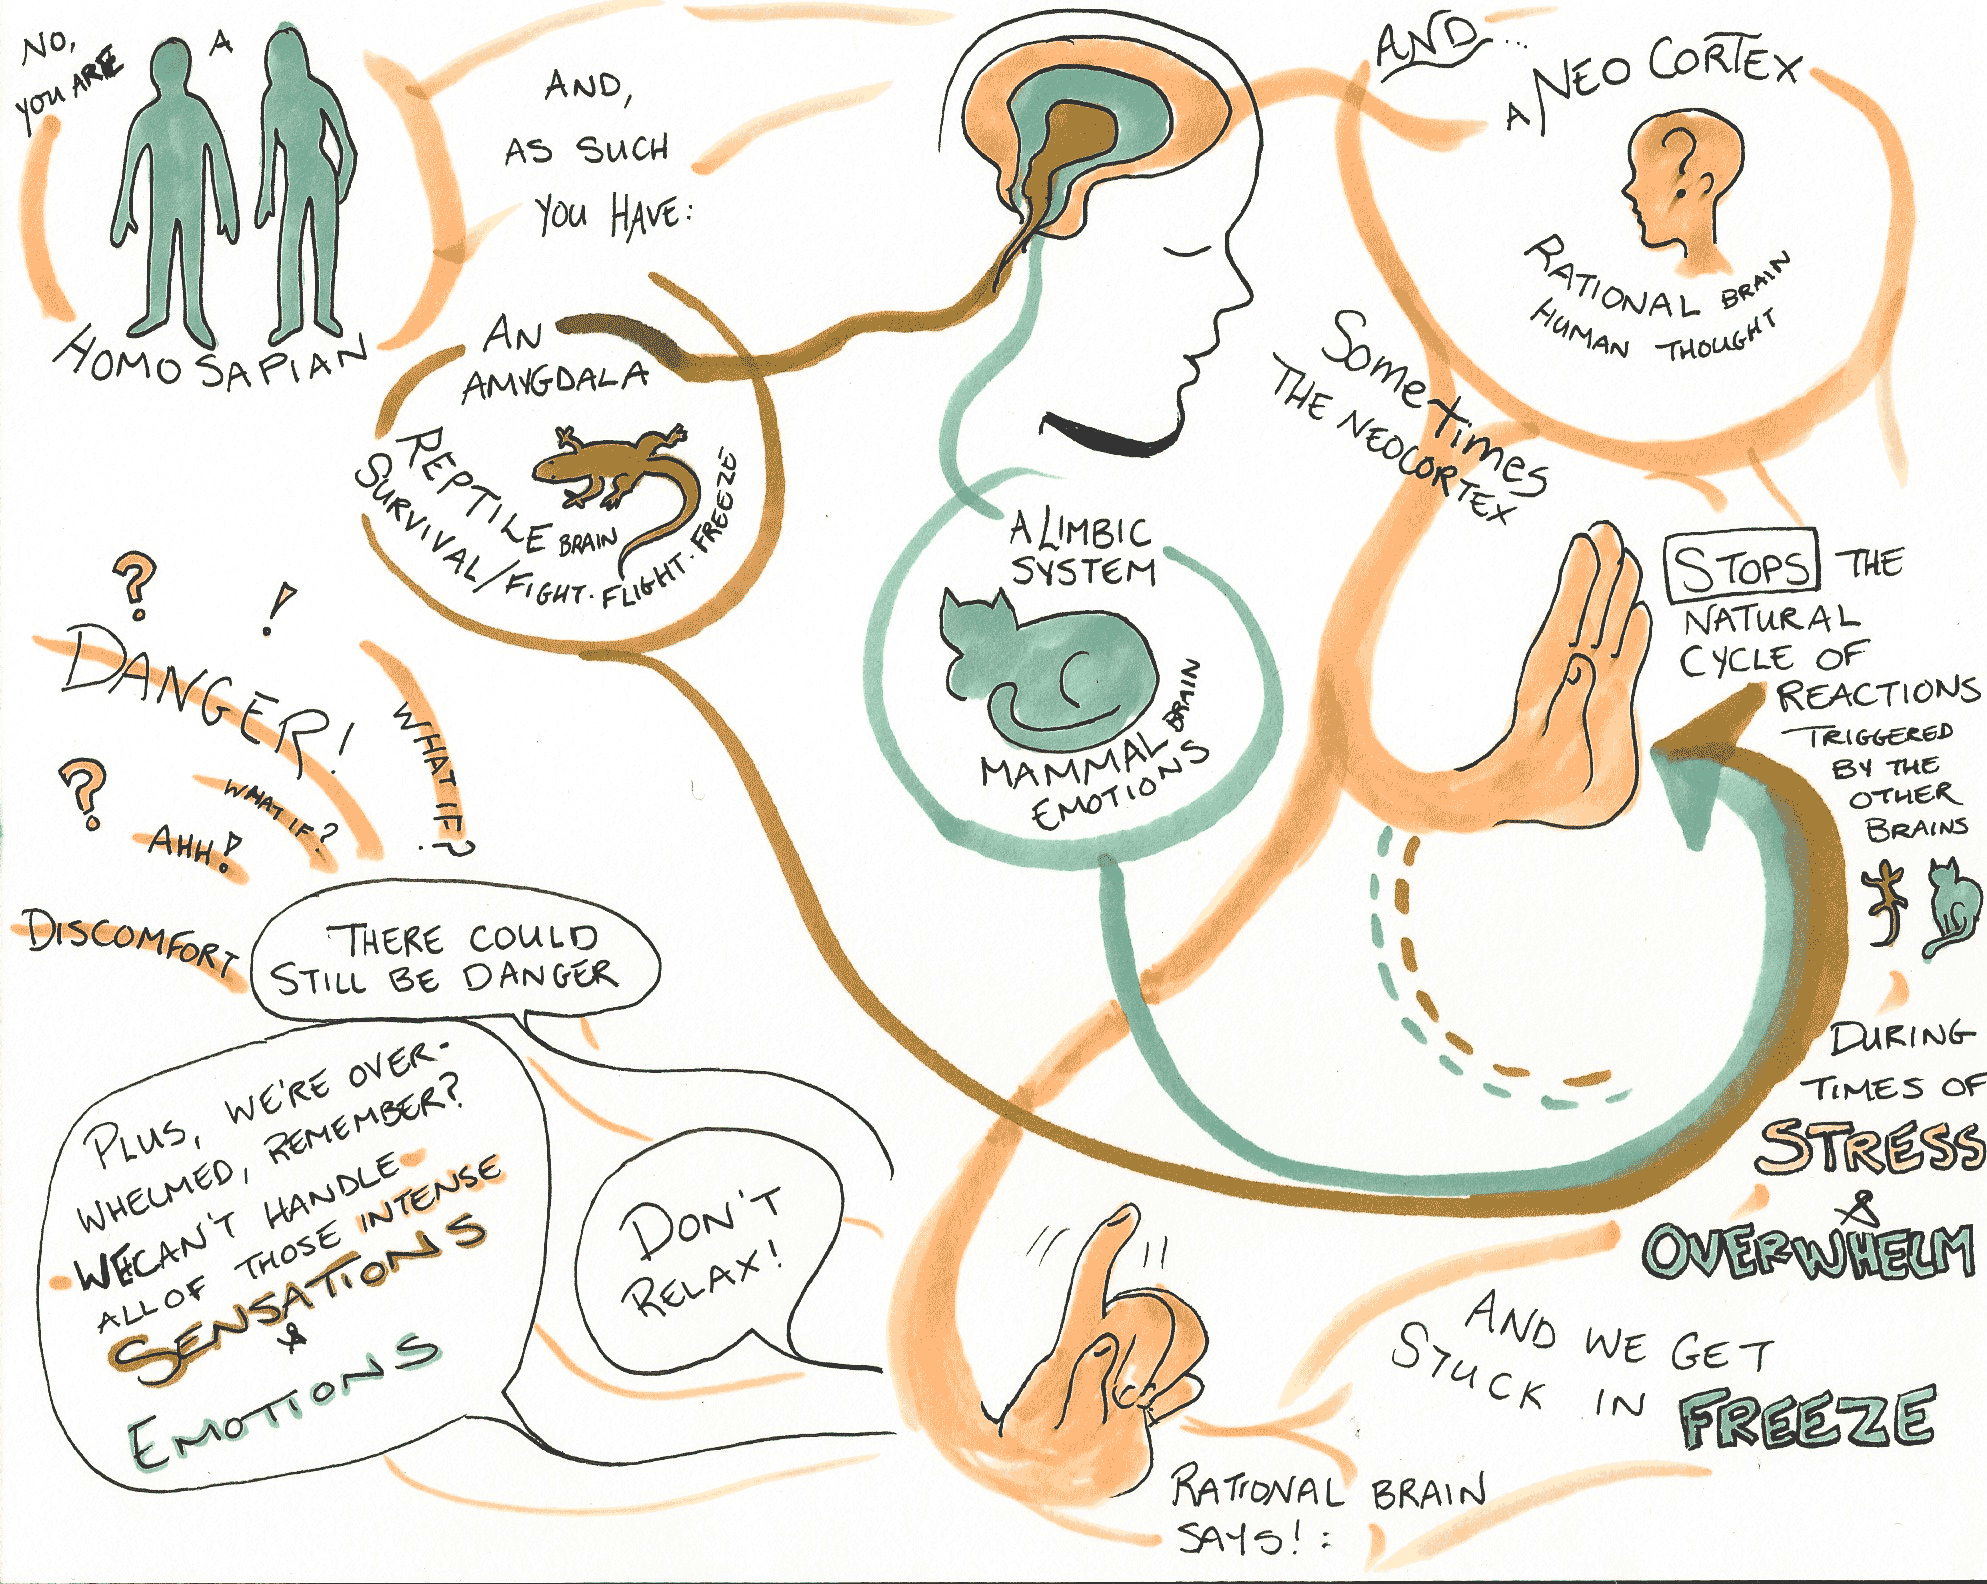 NO,
YOU ARE
A
HOMO SAPIAN
AND,
AS SUCH
YOU HAVE:
AN
AMYGDALA
REPTILE BRAIN
SURVIVAL/FIGHT·FLIGHT·FREEZE
A LIMBIC
SYSTEM
MAMMAL BRAIN
EMOTIONS
AND...
A NEO CORTEX
?
RATIONAL BRAIN
HUMAN THOUGHT
Sometimes
THE NEOCORTEX
STOPS THE
NATURAL
CYCLE OF
REACTIONS
TRIGGERED
BY THE
OTHER
BRAINS
DURING
TIMES OF
STRESS
&
OVERWHELM
AND WE GET
STUCK IN FREEZE
RATIONAL BRAIN
SAYS!:
DON'T
RELAX!
THERE COULD
STILL BE DANGER
PLUS, WE'RE OVER-
WHELMED, REMEMBER?
WE CAN'T HANDLE
ALL OF THOSE INTENSE
SENSATIONS
&
EMOTIONS
? !
DANGER!
WHAT IF?
?
WHAT IF?
AHH!
DISCOMFORT